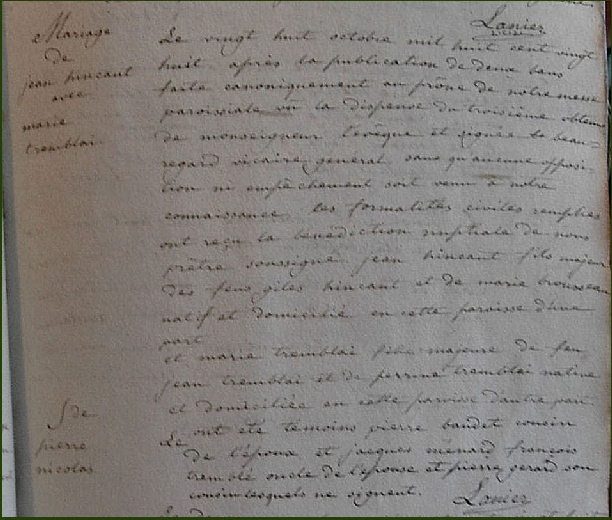 Lanier
Mariage
de
jean hincant
avec
marie
tremblai
Le vingt huit octobre mil huit cent vingt
huit après la publication de deux bans
faite canoniquement au prône de notre messe
paroissiale vû la dispense du troisième obtenu
de monseigneur l'évêque et signée beau-
regard vicaire general sans qu'aucune opposi-
tion ni empêchement soit venu a notre
connaissance les formalités civiles remplies
ont reçu la bénédiction nuptiale de nous
prêtre soussigné jean hincant fils majeur
des feus giles hincant et de marie brousseau
natif et domicilié en cette paroisse d'une
part
et marie tremblai fille majeure de feu
jean tremblai et de perrine tremblai native
et domiciliée en cette paroisse d'autre part
ont été temoins pierre baudet cousin
de l'époux et jacques menard françois
tremblé oncle de l'épouse et pierre gerard son
cousin lesquels ne signent.
Lanier
S de
pierre
nicolas
Le